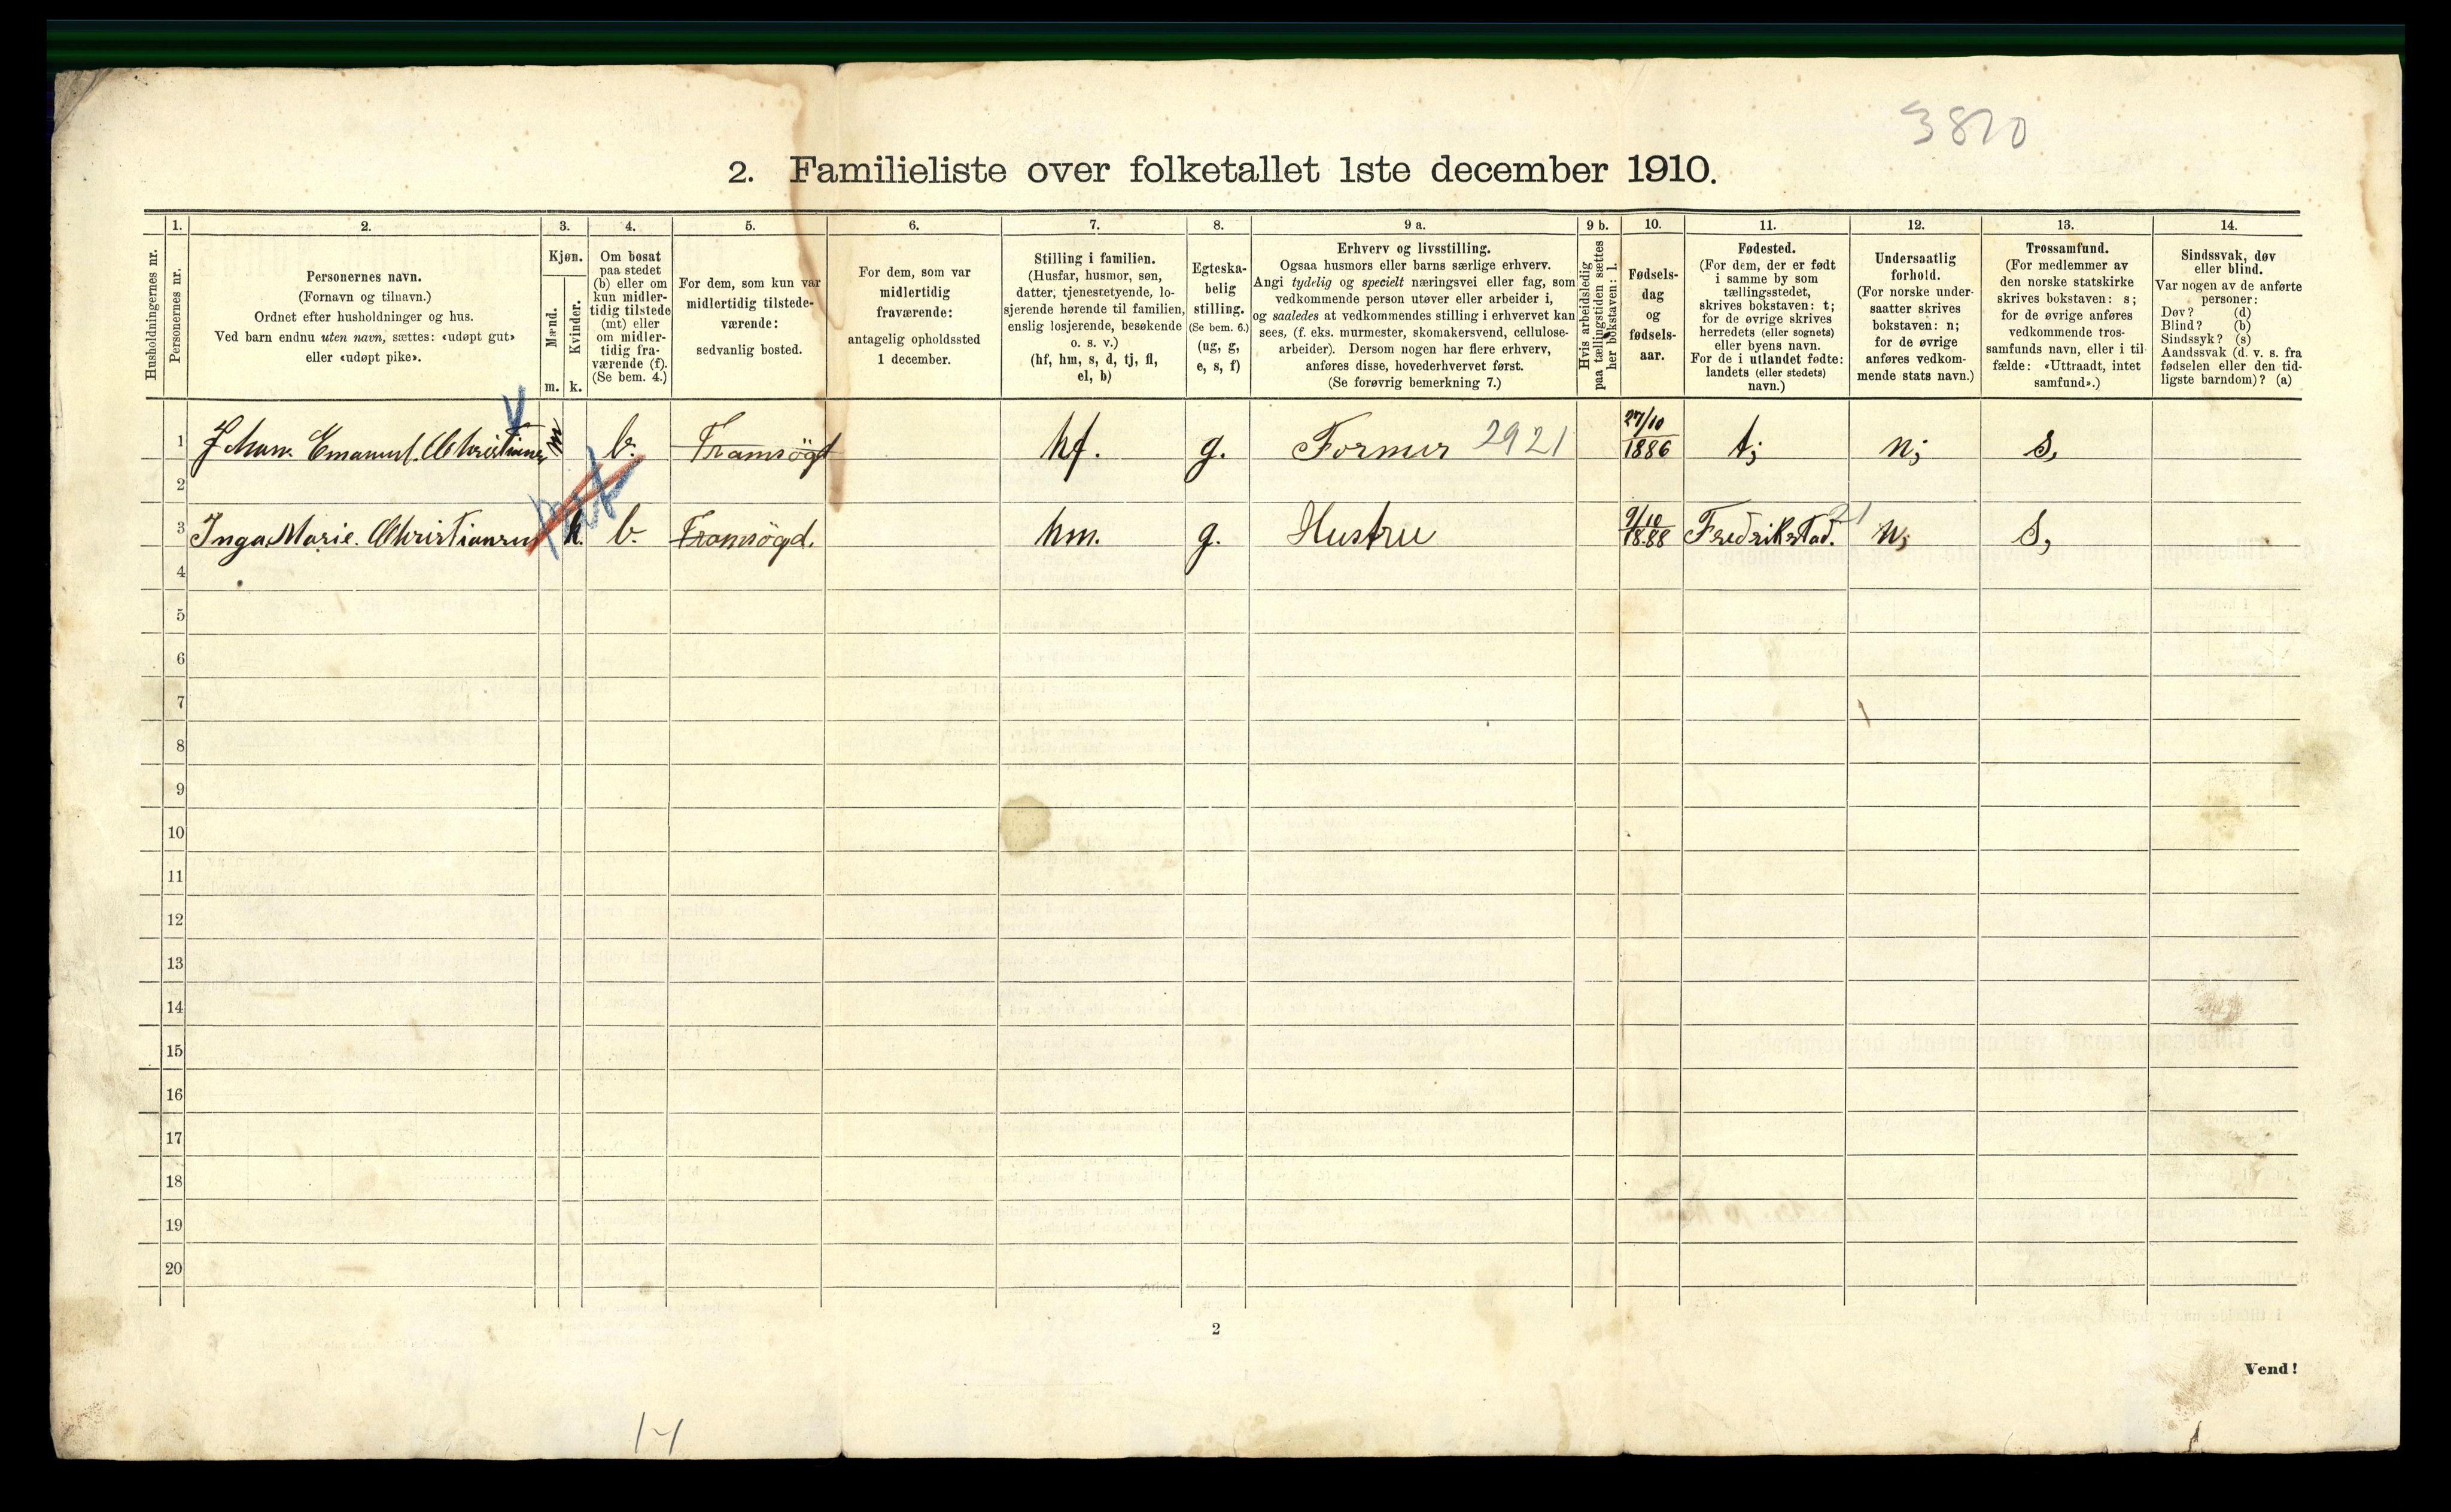 3810
2. Familieliste over folketallet 1ste december 1910.
1. 2. 3. 4. 5. 6. 7. 8. 9 a. 9 b. 10. 11. 12. 13. 14.
Husholdningernes nr.
Personernes nr.
Personernes navn.
(Fornavn og tilnavn.)
Ordnet efter husholdninger og hus.
Ved barn endnu uten navn, sættes: «udøpt gut»
eller «udøpt pike».
Kjøn.
Mænd.
Kvinder.
m. k.
Om bosat
paa stedet
(b) eller om
kun midler-
tidig tilstede
(mt) eller
om midler-
tidig fra-
værende (f).
(Se bem. 4.)
For dem, som kun var
midlertidig tilstede-
værende:
sedvanlig bosted.
For dem, som var
midlertidig
fraværende:
antagelig opholdssted
1 december.
Stilling i familien.
(Husfar, husmor, søn,
datter, tjenestetyende, lo-
sjerende hørende til familien,
enslig losjerende, besøkende
o. s. v.)
(hf, hm, s, d, tj, fl,
el, b)
Egteska-
belig
stilling.
(Se bem. 6.)
(ug, g,
e, s, f)
Erhverv og livsstilling.
Ogsaa husmors eller barns særlige erhverv.
Angi tydelig og specielt næringsvei eller fag, som
vedkommende person utøver eller arbeider i,
og saaledes at vedkommendes stilling i erhvervet kan
sees, (f. eks. murmester, skomakersvend, cellulose-
arbeider). Dersom nogen har flere erhverv,
anføres disse, hovederhvervet først.
(Se forøvrig bemerkning 7.)
Hvis arbeidsledig
paa tællingstiden sættes
her bokstaven: l.
Fødsels-
dag
og
fødsels-
aar.
Fødested.
(For dem, der er født
i samme by som
tællingsstedet,
skrives bokstaven: t;
for de øvrige skrives
herredets (eller sognets)
eller byens navn.
For de i utlandet fødte:
landets (eller stedets)
navn.)
Undersaatlig
forhold.
(For norske under-
saatter skrives
bokstaven: n;
for de øvrige
anføres vedkom-
mende stats navn.)
Trossamfund.
(For medlemmer av
den norske statskirke
skrives bokstaven: s;
for de øvrige anføres
vedkommende tros-
samfunds navn, eller i til
fælde: «Uttraadt, intet
samfund».)
Sindssvak, døv
eller blind.
Var nogen av de anførte
personer:
Døv? (d)
Blind? (b)
Sindssyk? (s)
Aandssvak (d. v. s. fra
fødselen eller den tid-
ligste barndom)? (a)
1 Johan. Emanuel. Christiansen m b. hf. g. Former 2921 27/10 1886 t; n; s,
2
3 Inga Marie. Christiansen k. b. hm. g. Hustru 9/10 1888 Fredrikstad. n; s,
4
5
6
7
8
9
10
11
12
13
14
15
16
17
18
19
20
2
Vend!
14